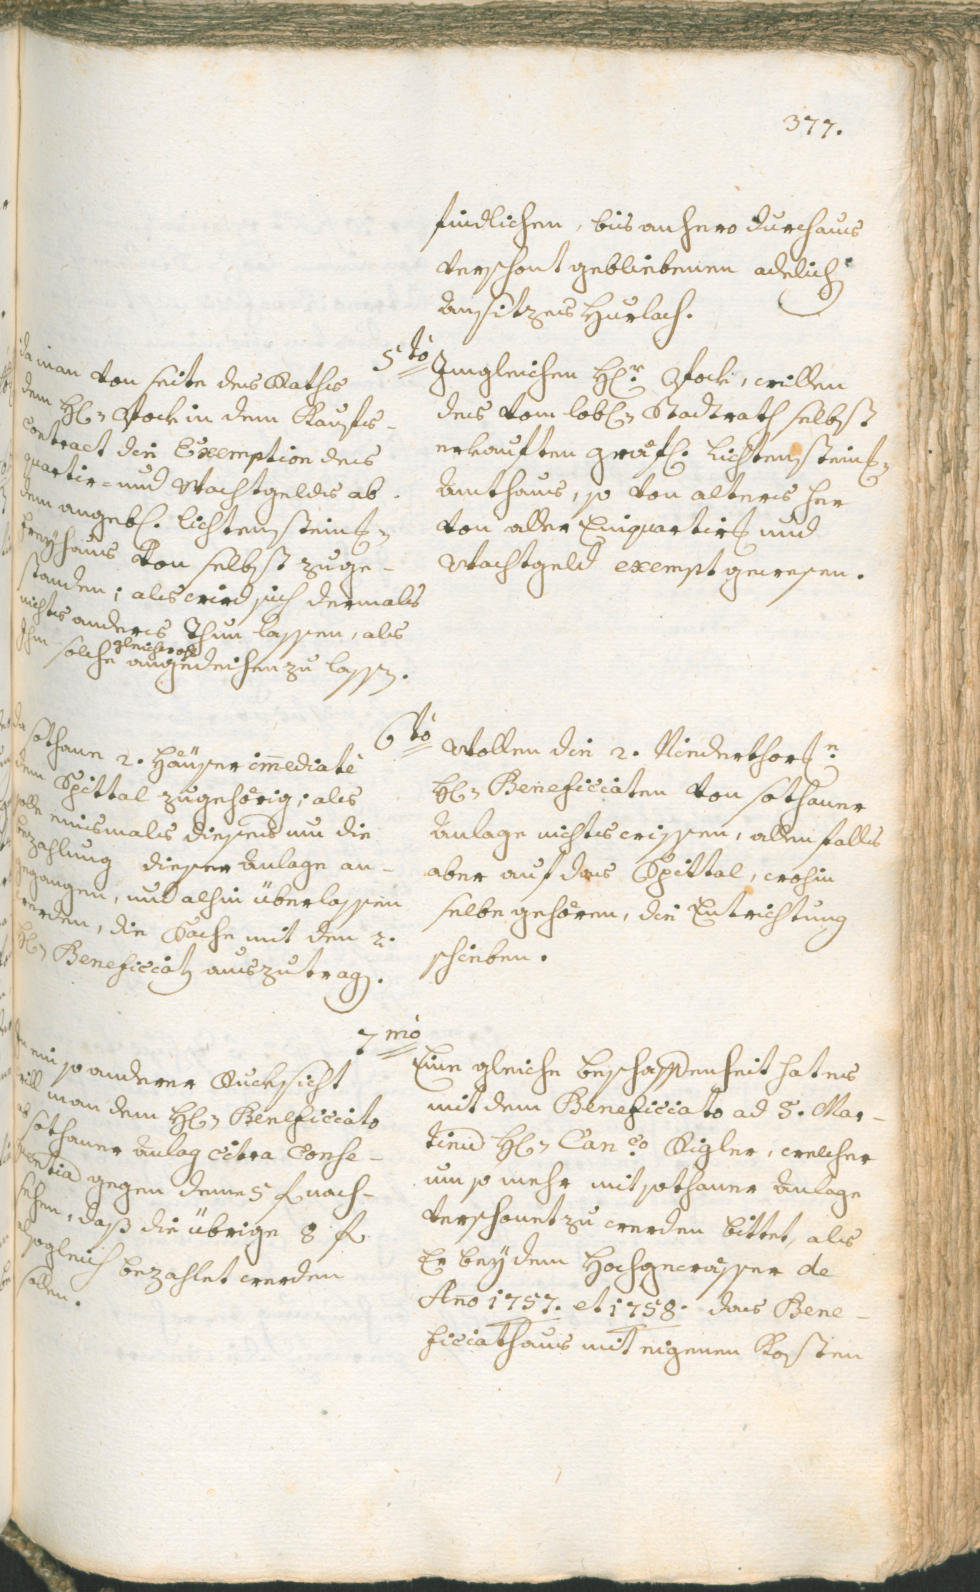 377.
findlichen, bis anhero durchaus
verschont gebliebenen adelich
Ansitzes Hurlach.
5to
Ingleichen H: Hr: Zock, willen
des vom lobl: Stadtrath selbst
erkauften gräfl: Lichtenstein:
Amthaus, so von alters her
von aller Einquartir: und
Wachtgeld exempt gewesen.
da man von seite des Raths
dem H: Zock in dem Kaufs-
contract die Exemption des
quartir- und Wachtgelds ab
dem angebl: Lichtenstein:
freÿhaus von selbst zuge-
standen; als wird sich dermals
nichts anders thun lassen, als
Ihm solche gleichwohl angedeihen zu lassen.
6to
Wollen die 2. Niederthor:
H: Beneficiaten von sothaner
Anlage nichts wissen, allenfalls
aber auf das Spittal, wohin
selbe gehören, die Entrichtung
schieben.
da sothane 2. Häüser immediatè
dem Spittal zugehörig; als
solle einsmals dieses um die
bezahlung dieser Anlage an-
gegangen, und alhin überlassen
werden, die Sache mit den 2.
H: Beneficiat: auszutragen.
7mo
Eine gleiche beschaffenheit hat es
mit dem Beneficiato ad S. Mar-
tinum H: Canco: Rigler, welcher
um so mehr mit sothaner Anlage
verschonet zu werden bittet, als
Er beÿ dem Hochgewässer de
Ano 1757. et 1758. das Bene-
ficiathaus mit eigenen Kosten
In ein so anderer Rucksicht
will man dem H: Beneficiato
ab sothaner Anlag citra Conse-
quentiam gegen deme 5 f nach-
sehen, daß die übrige 8 f
alsogleich bezahlet werden
sollen.